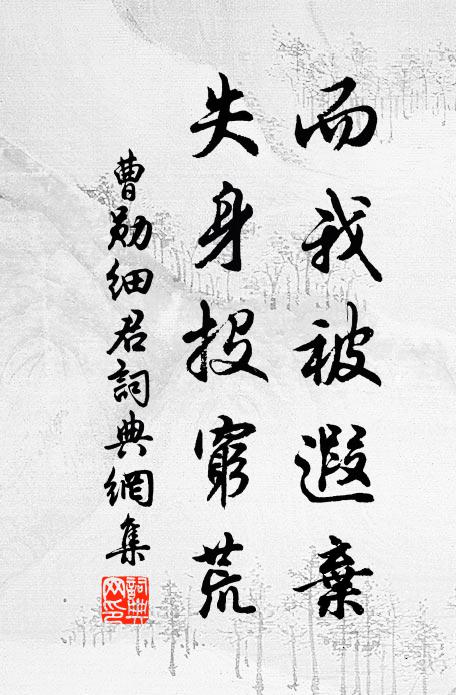 而我被遐棄
失身投窮荒
曹勛細君詞典網集
詞典
网印